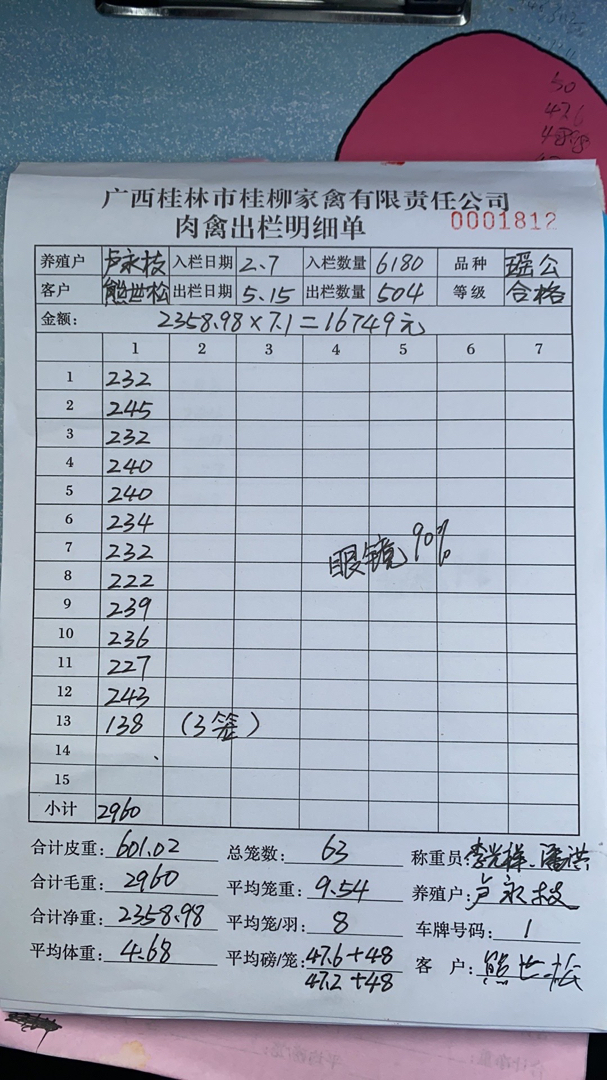 50
47.6
48.8
广西桂林市桂柳家禽有限责任公司
肉禽出栏明细单 0001812
养殖户 卢永枝 入栏日期 2.7 入栏数量 6180 品种 瑶公
客户 熊世松 出栏日期 5.15 出栏数量 504 等级 合格
金额: 2358.98×7.1=16749元
1 2 3 4 5 6 7
1 232
2 245
3 232
4 240
5 240
6 234
7 232 眼镜90%
8 222
9 239
10 236
11 227
12 243
13 138 (3笼)
14
15
小计 2960
合计皮重: 601.02 总笼数: 63 称重员: 李光祥、潘洪
合计毛重: 2960 平均笼重: 9.54 养殖户: 卢永枝
合计净重: 2358.98 平均笼/羽: 8 车牌号码: 1
平均体重: 4.68 平均磅/笼: 47.6+48 客 户: 熊世松
47.2+48